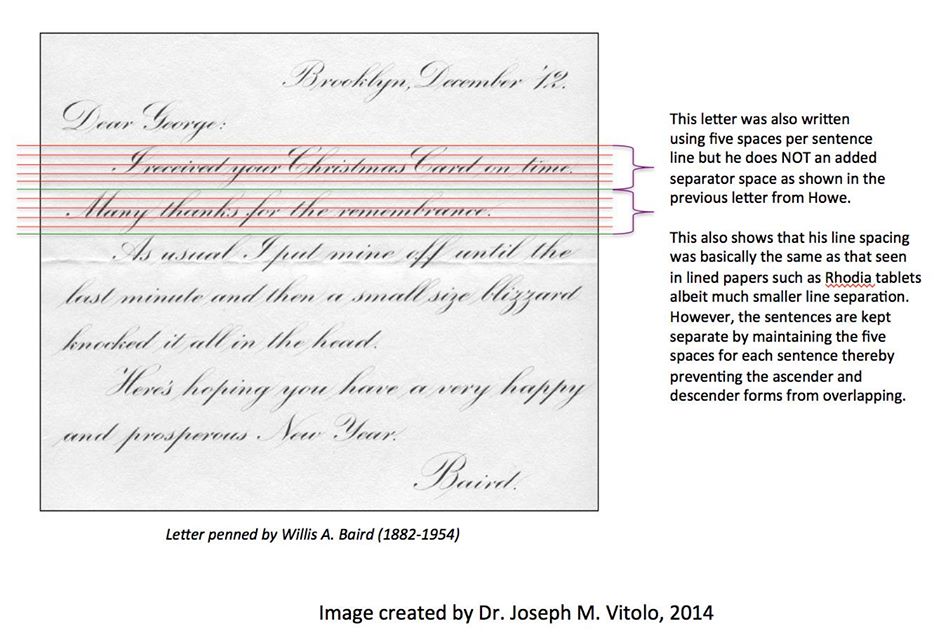 Brooklyn, December '12.
Dear George:
I received your Christmas Card on time.
Many thanks for the remembrance.
As usual I put mine off until the
last minute and then a small size blizzard
knocked it all in the head.
Here's hoping you have a very happy
and prosperous New Year.
Baird.
This letter was also written
using five spaces per sentence
line but he does NOT an added
separator space as shown in the
previous letter from Howe.
This also shows that his line spacing
was basically the same as that seen
in lined papers such as Rhodia tablets
albeit much smaller line separation.
However, the sentences are kept
separate by maintaining the five
spaces for each sentence thereby
preventing the ascender and
descender forms from overlapping.
Letter penned by Willis A. Baird (1882-1954)
Image created by Dr. Joseph M. Vitolo, 2014